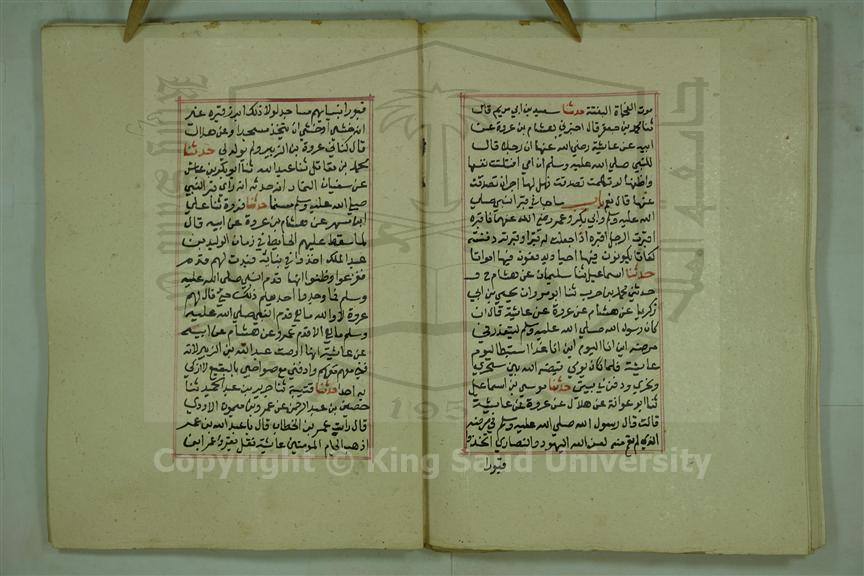 موت الفجأة البغتة حدثنا سعيد بن ابي مريم قال
ثنا محمد بن جعفر قال اخبرني هشام بن عروة عن
ابيه عن عائشة رضي الله عنها ان رجلا قال
للنبي صلى الله عليه وسلم ان امي افتلتت نفسها
واظنها لو تكلمت تصدقت فهل لها اجر ان تصدقت
عنها قال نعم باب ما جاء في قبر النبي صلى
الله عليه وسلم وابي بكر وعمر رضي الله عنهما فاقبره
اقبرت الرجل اقبره اذا جعلت له قبرا وقبرته دفنته
كفاتا يكونون فيها احيا ويدفنون فيها امواتا
حدثنا اسماعيل ثنا سليمان عن هشام ح و
حدثني محمد بن حرب ثنا ابو مروان يحيى بن ابي
زكريا عن هشام عن عروة عن عائشة قال ان
كان رسول الله صلى الله عليه وسلم ليتعذر في
مرضه اين انا اليوم اين انا غدا استبطا ليوم
عائشة فلما كان يومي قبضه الله بين سحري
ونحري ودفن في بيتي حدثنا موسى بن اسماعيل
ثنا ابو عوانة عن هلال عن عروة عن عائشة
قالت قال رسول الله صلى الله عليه وسلم في مرضه
الذي لم يقم منه لعن الله اليهود والنصارى اتخذوا
قبورا
قبور انبيائهم مساجد لولا ذلك ابرز قبره غير
انه خشي او خشي ان يتخذ مسجدا وعن هلال
قال كناني عروة بن الزبير ولم يولد لي حدثنا
محمد بن مقاتل ثنا عبد الله ثنا ابو بكر بن عياش
عن سفيان التمار انه حدثه انه راى قبر النبي
صلى الله عليه وسلم مسنما حدثنا فروة ثنا علي
ابن مسهر عن هشام بن عروة عن ابيه قال
لما سقط عليهم الحايط في زمان الوليد بن
عبد الملك اخذوا في بنائه فبدت لهم قدم
ففزعوا وظنوا انها قدم النبي صلى الله عليه
وسلم فما وجدوا احد يعلم ذلك حتى قال لهم
عروة لا والله ما هي قدم النبي صلى الله عليه
وسلم ما هي الا قدم عمر وعن هشام عن ابيه
عن عائشة انها اوصت عبد الله بن الزبير لا تد
فني معهم وادفني مع صواحبي بالبقيع لا ازكى
به ابدا حدثنا قتيبة ثنا جرير بن عبد الحميد ثنا
حصين بن عبد الرحمن عن عمرو بن ميمون الاودي
قال رايت عمر بن الخطاب قال يا عبد الله بن عمر
اذهب الى ام المومنين عائشة فقل يقرؤ عمر
Copyright © King Saud University
195